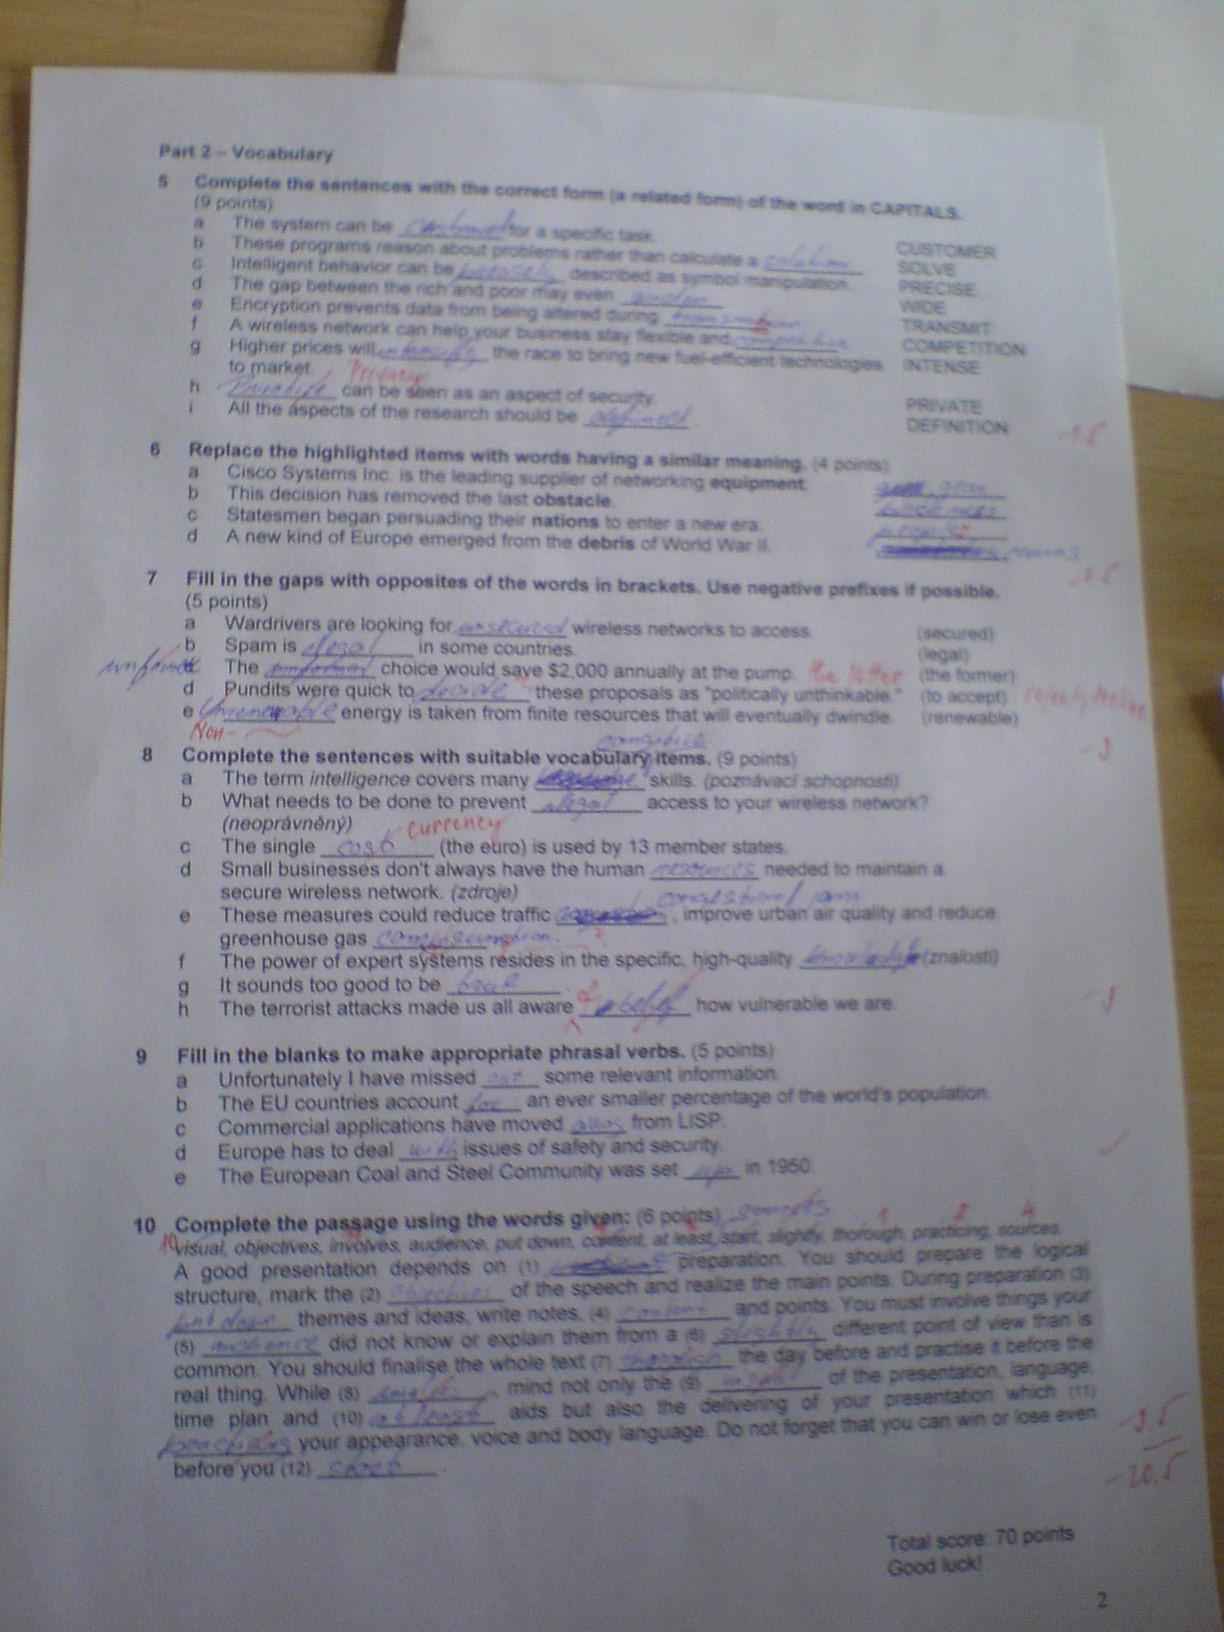 Part 2 – Vocabulary
5 Complete the sentences with the correct form (a related form) of the word in CAPITALS.
(9 points)
a The system can be for a specific task.
CUSTOMER
b These programs reason about problems rather than calculate a solution
SOLVE
c Intelligent behavior can be precisely described as symbol manipulation.
PRECISE
d The gap between the rich and poor may even widen
WIDE
e Encryption prevents data from being altered during
TRANSMIT
f A wireless network can help your business stay flexible and competitive
COMPETITION
g Higher prices will intensify the race to bring new fuel-efficient technologies
INTENSE
to market.
Privacy
h can be seen as an aspect of security.
PRIVATE
i All the aspects of the research should be defined
DEFINITION
6 Replace the highlighted items with words having a similar meaning. (4 points)
a Cisco Systems Inc. is the leading supplier of networking equipment. gear
b This decision has removed the last obstacle.
c Statesmen began persuading their nations to enter a new era.
d A new kind of Europe emerged from the debris of World War II.
7 Fill in the gaps with opposites of the words in brackets. Use negative prefixes if possible.
(5 points)
a Wardrivers are looking for unsecured wireless networks to access. (secured)
b Spam is illegal in some countries. (legal)
The choice would save $2,000 annually at the pump. the latter (the former)
d Pundits were quick to decide these proposals as "politically unthinkable." (to accept) reject, decline
e Unrenewable energy is taken from finite resources that will eventually dwindle. (renewable)
Non-
-3
8 Complete the sentences with suitable vocabulary items. (9 points)
a The term intelligence covers many skills. (poznávací schopnosti)
b What needs to be done to prevent illegal access to your wireless network?
(neoprávněný)
currency
c The single cost (the euro) is used by 13 member states.
d Small businesses don't always have the human resources needed to maintain a
secure wireless network. (zdroje)
congestion / jam
e These measures could reduce traffic , improve urban air quality and reduce
greenhouse gas
f The power of expert systems resides in the specific, high-quality knowledge (znalosti)
g It sounds too good to be true .
h The terrorist attacks made us all aware of how vulnerable we are.
-3
9 Fill in the blanks to make appropriate phrasal verbs. (5 points)
a Unfortunately I have missed out some relevant information.
b The EU countries account for an ever smaller percentage of the world's population.
c Commercial applications have moved away from LISP.
d Europe has to deal with issues of safety and security.
e The European Coal and Steel Community was set up in 1950.
10 Complete the passage using the words given: (6 points)
visual, objectives, involves, audience, put down, content, at least, start, slightly, thorough, practicing, sources.
A good presentation depends on (1) preparation. You should prepare the logical
structure, mark the (2) objectives of the speech and realize the main points. During preparation (3)
put down themes and ideas, write notes, (4) content and points. You must involve things your
(5) audience did not know or explain them from a (6) slightly different point of view than is
common. You should finalise the whole text (7) the day before and practise it before the
real thing. While (8) mind not only the (9) of the presentation, language,
time plan and (10) at least aids but also the delivering of your presentation which (11)
practicing your appearance, voice and body language. Do not forget that you can win or lose even
before you (12) start .
-20,5
Total score: 70 points
Good luck!
2